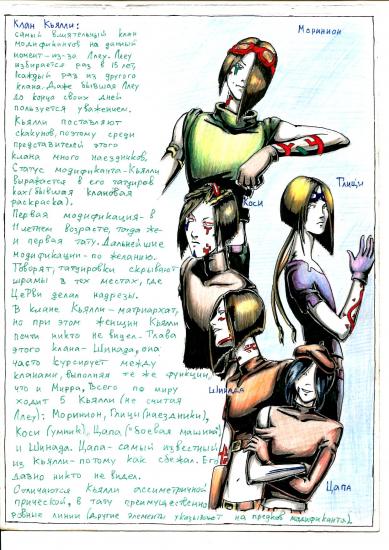 Клан Кьялли:
самый влиятельный клан
модификантов на данный
момент-из-за Ллеу. Ллеу
избирается раз в 15 лет,
каждый раз из другого
клана. Даже бывшая Ллеу
до конца своих дней
пользуется уважением.
Кьялли поставляют
скакунов, поэтому среди
представителей этого
клана много наездников.
Статус модификанта-Кьялли
выражается в его татуиров
ках (бывшая клановая
раскраска).
Первая модификация - в
11 летнем возрасте, тогда же
и первая тату. Дальнейшие
модификации - по желанию.
Говорят, татуировки скрывают
шрамы в тех местах, где
ЦеРви делал надрезы.
В клане Кьялли-матриархат,
но при этом женщин Кьялли
почти никто не видел. Глава
этого клана - Шинада, она
часто курсирует между
кланами, выполняя те же функции,
что и Мирра. Всего по миру
ходит 5 Кьялли (не считая
Ллеу): Моринион, Глици (наездники),
Коси (умник), Цапа ("боевая машина")
и Шинада. Цапа - самый известный
из Кьялли - потому как сбежал. Его
давно никто не видел.
Отличаются Кьялли ассиметричной
прической, в тату преимущественно
ровные линии (другие элементы указывают на предков модификанта).
Моринион
Глици
Коси
Шинада
Цапа